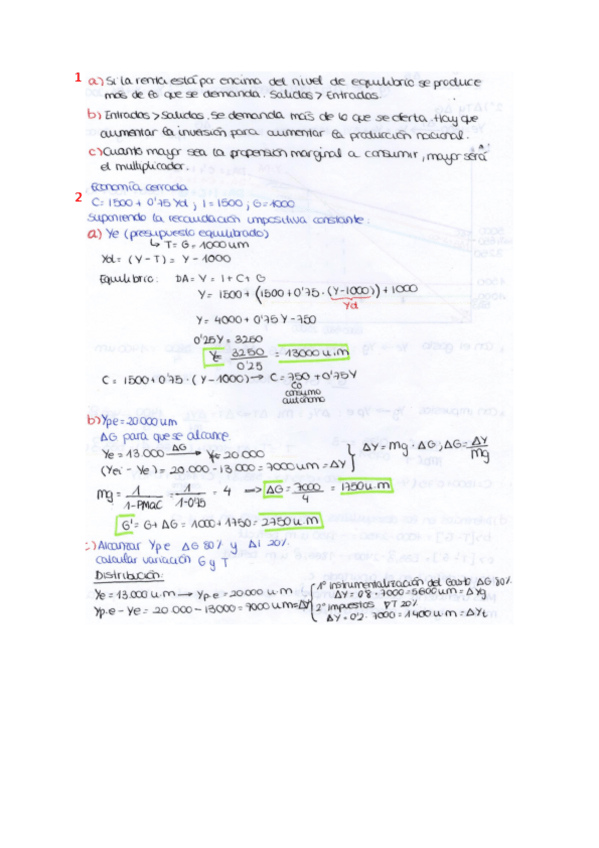 1 a) Si la renta está por encima del nivel de equilibrio se produce
más de lo que se demanda. Salidas > Entradas.
b) Entradas > Salidas. Se demanda más de lo que se oferta. Hay que
aumentar la inversión para aumentar la producción nacional.
c) Cuanto mayor sea la propensión marginal a consumir, mayor será
el multiplicador.
Economía cerrada
2 C = 1500 + 0'75 Yd ; I = 1500 ; G = 1000
Suponiendo la recaudación impositiva constante:
a) Ye (presupuesto equilibrado)
↳ T = G = 1000 um
Yd = (Y - T) = Y - 1000
Equilibrio: DA = Y = I + C + G
Y = 1500 + (1500 + 0'75 · (Y - 1000)) + 1000
Yd
Y = 4000 + 0'75 Y - 750
0'25 Y = 3250
Y = 3250 / 0'25 = 13000 u.m
C = 1500 + 0'75 · (Y - 1000) → C = 750 + 0'75 Y
Co
consumo
autónomo
b) Ype = 20000 um
ΔG para que se alcance.
Ye = 13.000 —ΔG→ Ye = 20 000
(Yei - Ye) = 20.000 - 13 000 = 7000 um = ΔY } ΔY = mg · ΔG ; ΔG = ΔY / mg
mg = 1 / 1-PMaC = 1 / 1-0'75 = 4 => ΔG = 7000 / 4 = 1750 u.m
G' = G + ΔG = 1000 + 1750 = 2750 u.m
c) Alcanzar Yp.e ΔG 80% y Δi 20%.
calcular variación G y T
Distribución:
Ye = 13.000 u.m → Yp.e = 20 000 u.m { 1º instrumentalización del Gasto ΔG 80%
ΔY = 0'8 · 7000 = 5600 um = ΔYg
Yp.e - Ye = 20 000 - 13000 = 7000 um = ΔY 2º impuestos ∇T 20%
ΔY = 0'2 · 7000 = 1400 u.m = ΔYt